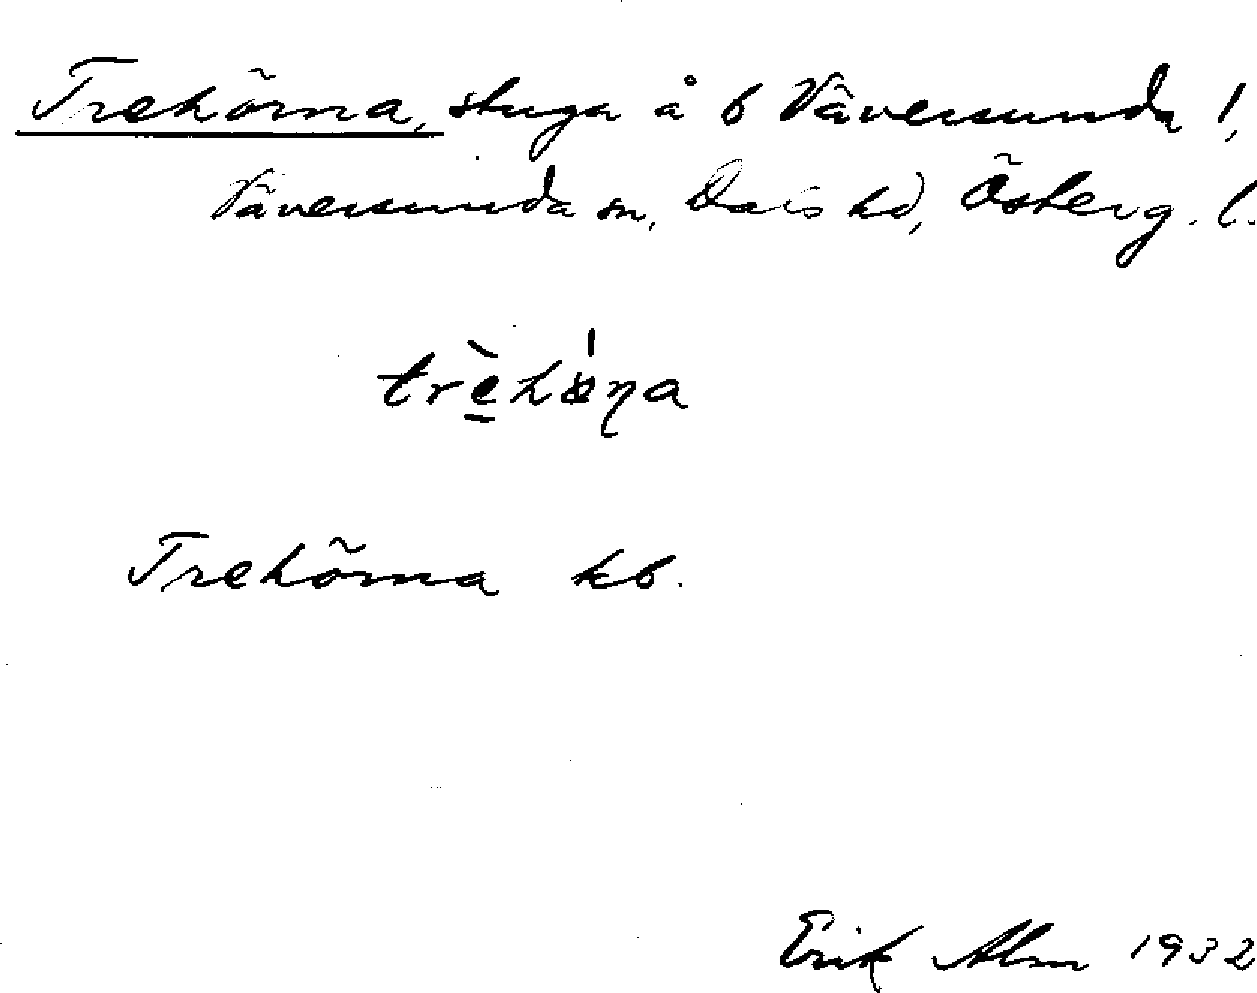 Trehörna, stuga å 6 Väversunda 1,
Väversunda sn, Dals hd, Österg. l.
trèhö́ɳa
Trehörna kb.
Erik Alm 1932